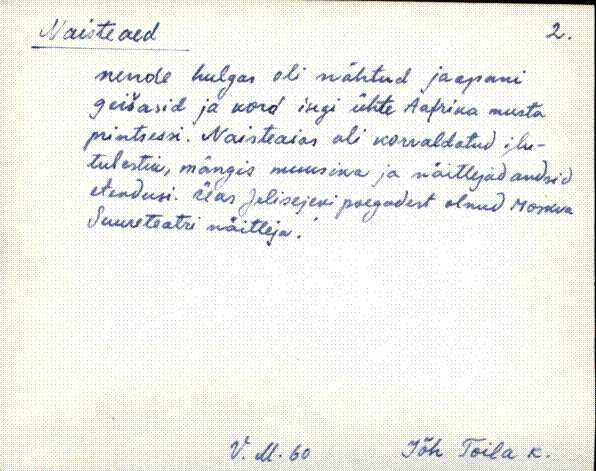 Naisteaed 2.
nende hulgas oli nähtud jaapani
geišasid ja kord isegi ühte Aafrika musta
printsessi. Naisteaias oli korraldatud ilu-
tulestik, mängis muusika ja näitlejad andsid
etendusi. Üks Jelissejevi poegadest olnud Moskva
Suureteatri näitleja.
V. M. 60 Jõh Toila k.